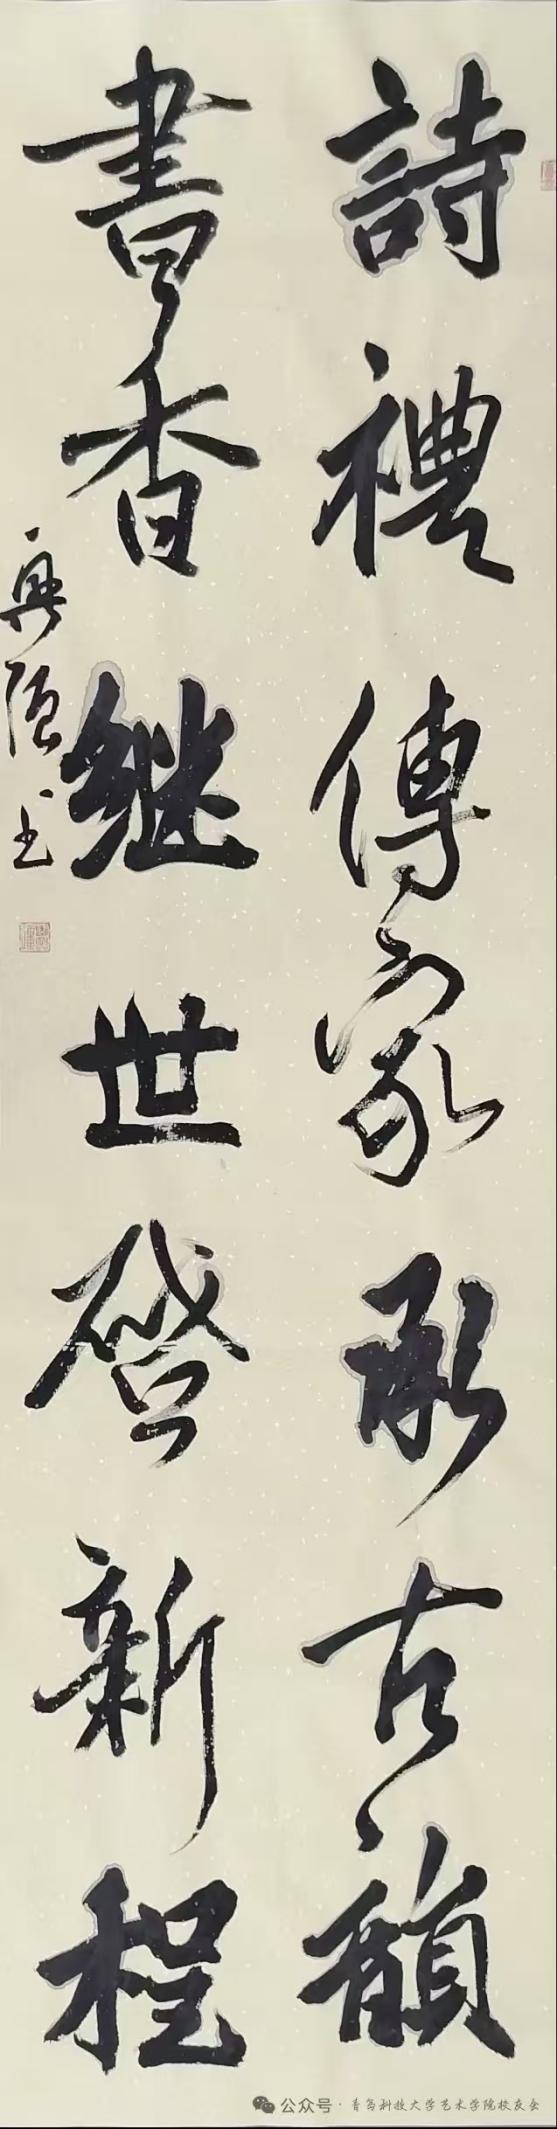 詩禮傳家承古韻
書香继世啓新程
公众号·青岛科技大学艺术学院校友会